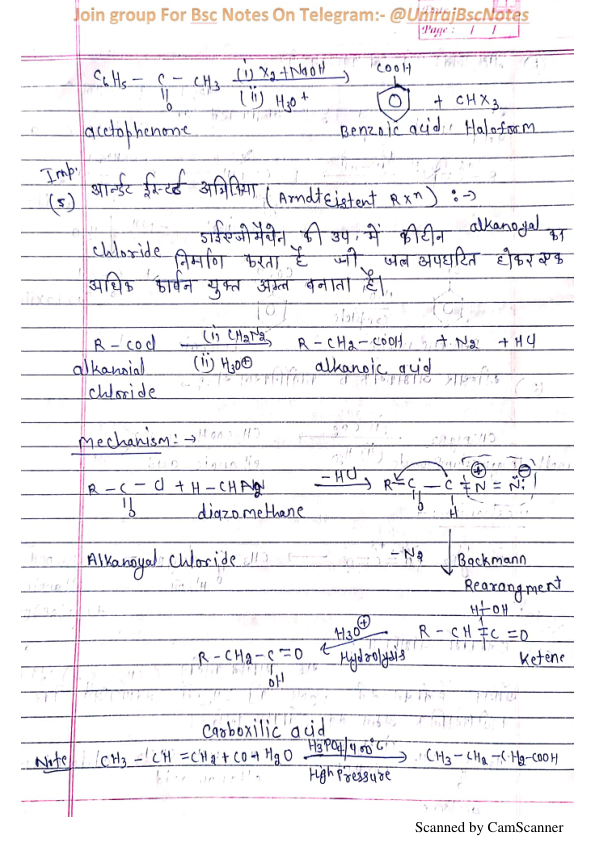 Join group For Bsc Notes On Telegram:- @UnirajBscNotes
Page: / /
C6H5 – C – CH3 (i) X2 + NaOH → COOH + CHX3
|| O (ii) H3O+
acetophenone Benzoic acid Haloform
Imp.
(5) आर्न्डट ईस्टर्ड अभिक्रिया (Arndt Eistent Rxn) :→
डाईएजोमैथेन की उप. में कीटीन alkanoyal का
chloride निर्माण करता है जो जल अपघटित होकर एक
अधिक कार्बन युक्त अम्ल बनाता है।
R – COCl (i) CH2N2 → R – CH2 – COOH + N2 + HCl
alkanoial (ii) H3O⊕ alkanoic acid
chloride
Mechanism :→
R – C – Cl + H – CHN2 –HCl → R – C – C – N = N:
|| O diazomethane || O H ⊕ ⊖
Alkanoyal Chloride –N2 ↓ Backmann
Rearangment
H – OH
R – CH2 – C = O ← H3O⊕ R – CH = C = O
OH Hydrolysis Ketene
Carboxilic acid
Note CH3 – CH = CH2 + CO + H2O H3PO4/400°C → CH3 – CH2 – CH2 – COOH
High Pressure
Scanned by CamScanner